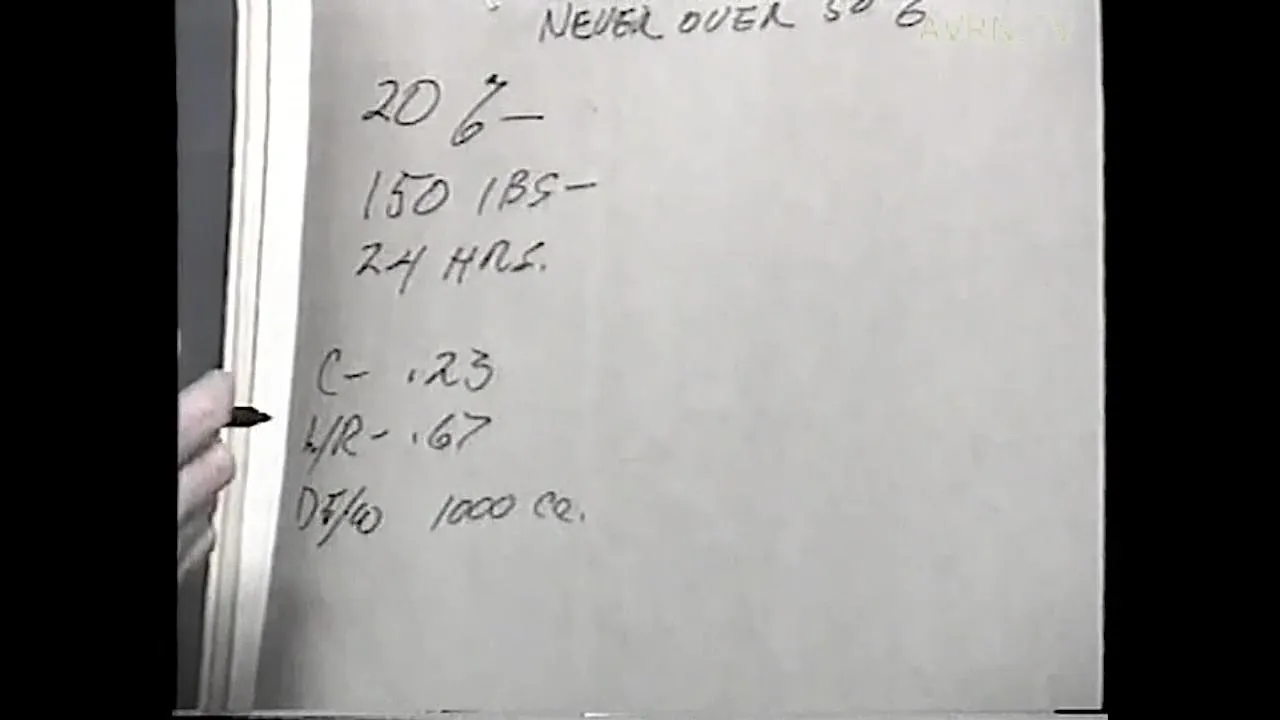 NEVER OVER 50 %
AVRN TV
20 % —
150 lBS —
24 HRS.
C - .23
L/R - .67
D5/W 1000 cc.